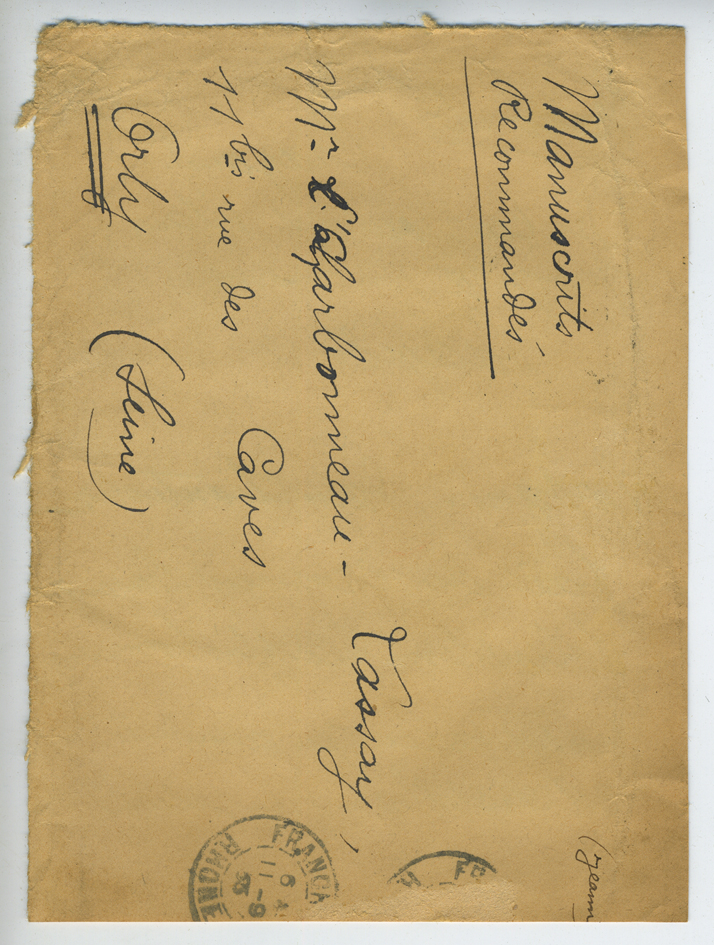 Manuscrits
Recommandés
Mr L. Charbonneau-Lassay,
11 bis rue des Caves
Orly (Seine)
FRANCH
RHONE
6
11-9
35
FR
(Jeann